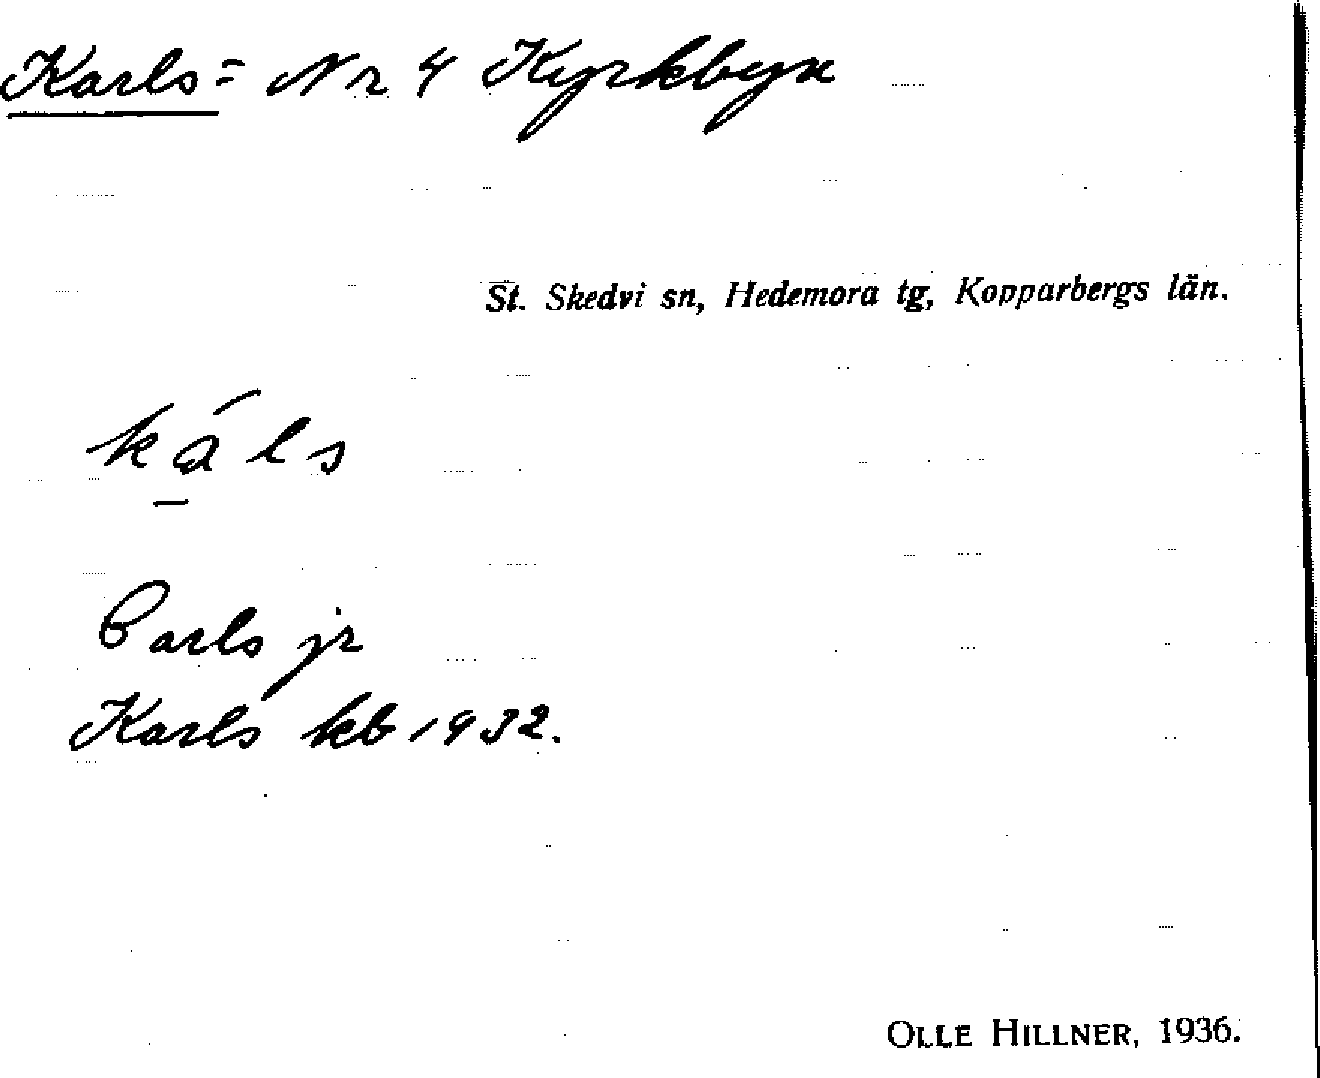 Karls = Nr 4 Kyrkbyn
St. Skedvi sn, Hedemora tg, Kopparbergs län.
káls
Carls jr
Karls kb 1932.
OLLE HILLNER, 1936.